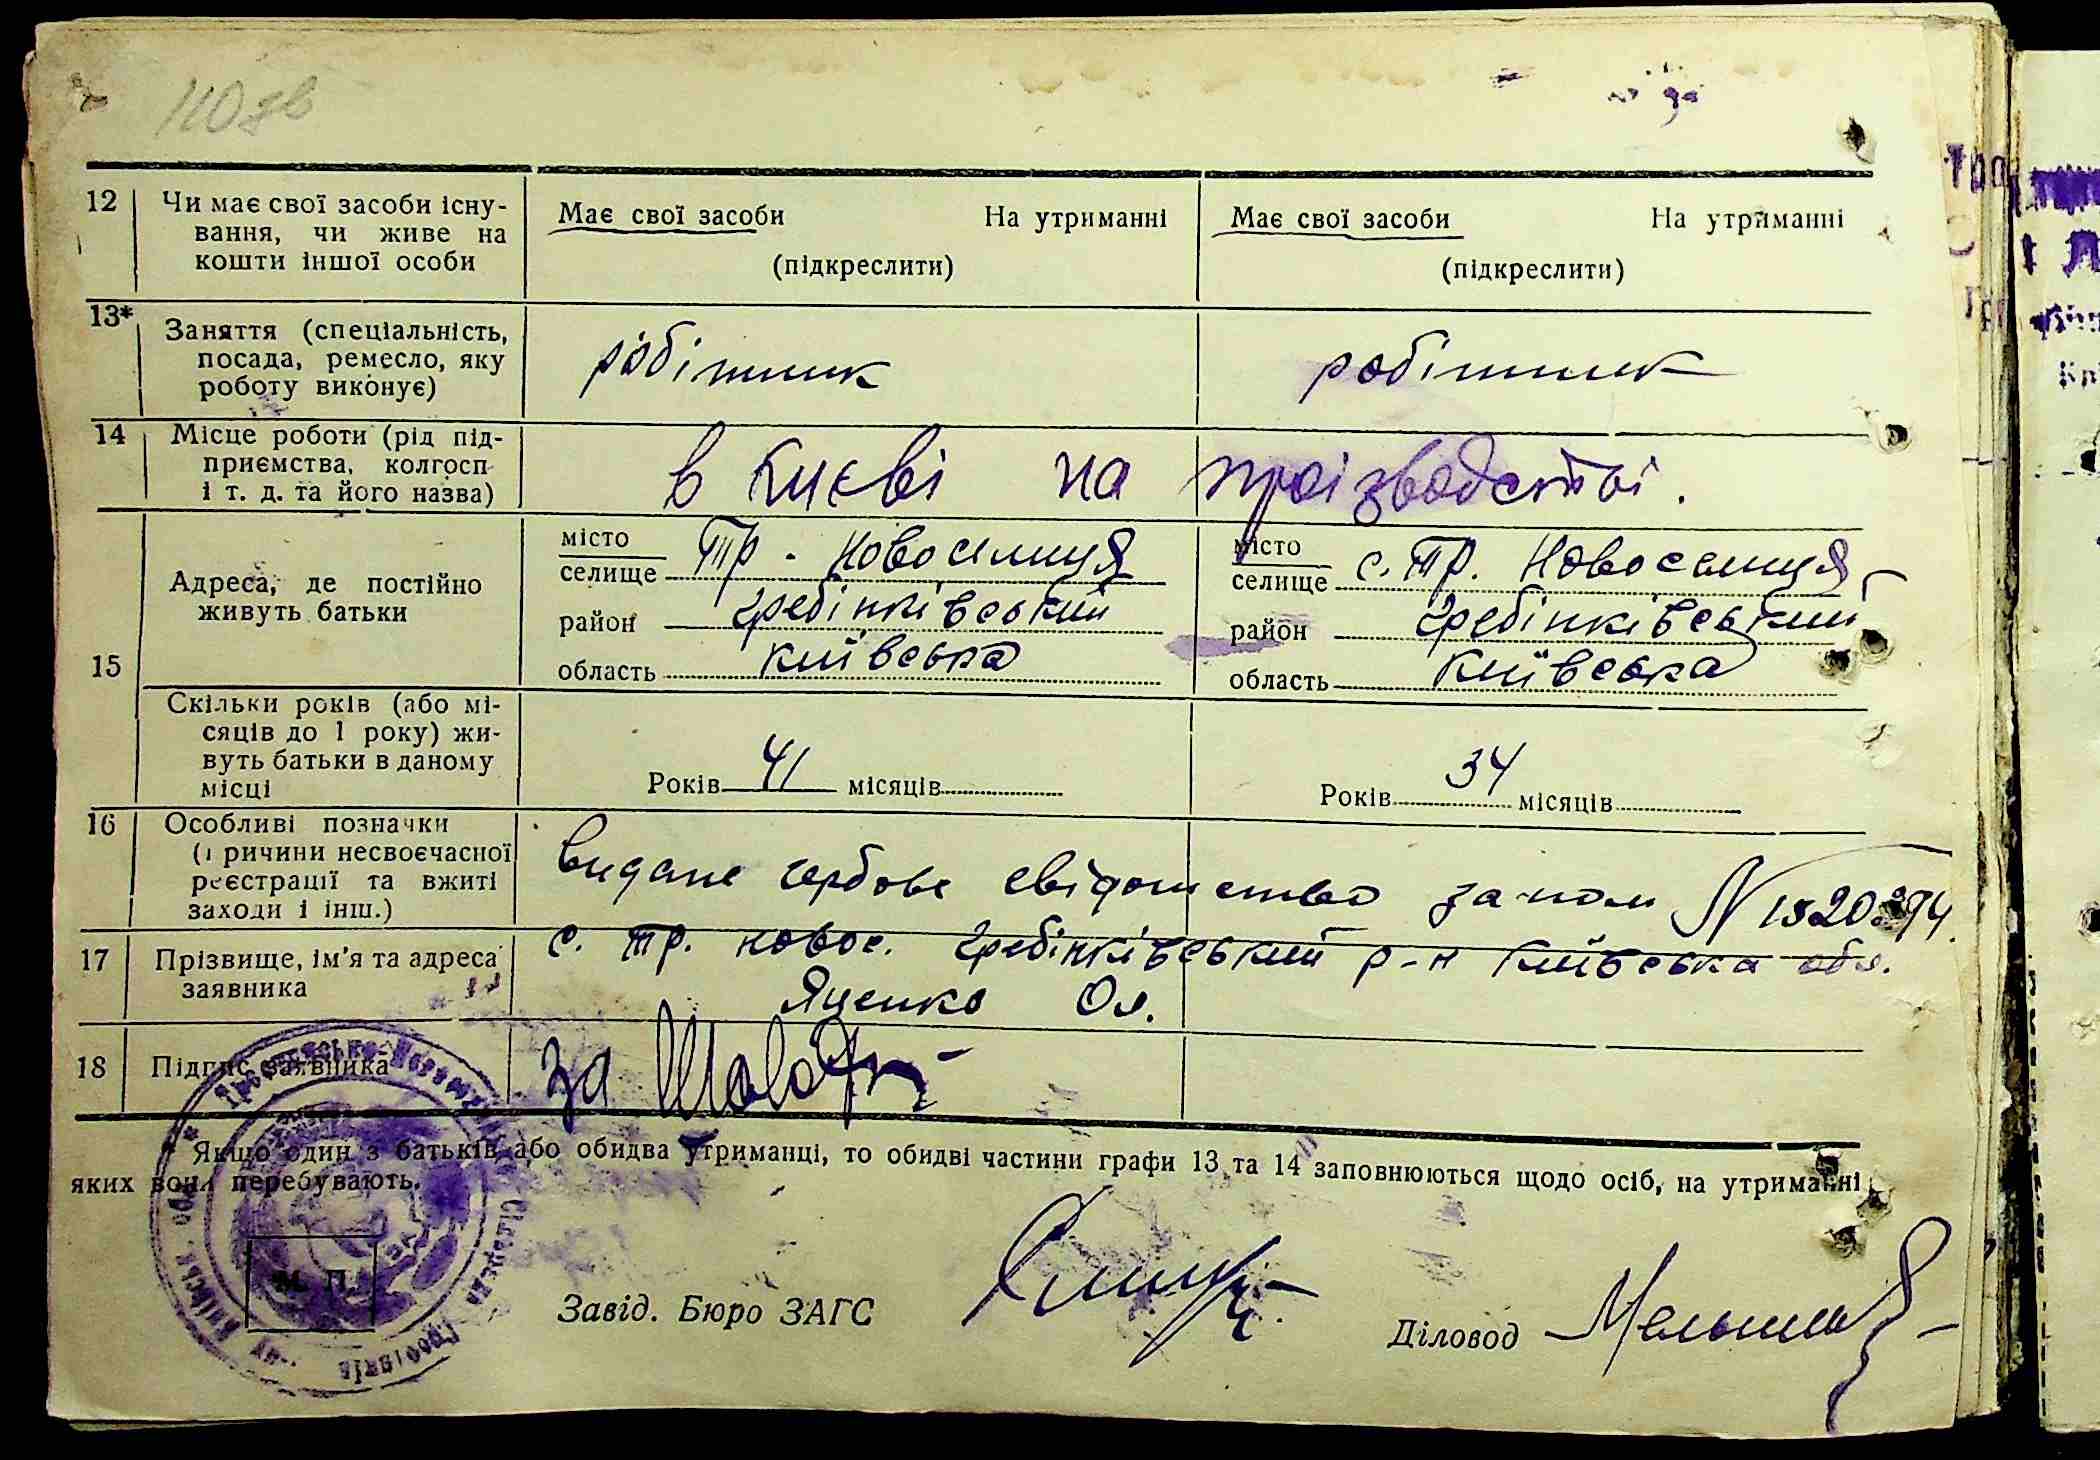 110 зв
12 Чи має свої засоби існу-
вання, чи живе на
кошти іншої особи
Має свої засоби На утриманні
(підкреслити)
Має свої засоби На утриманні
(підкреслити)
13* Заняття (спеціальність,
посада, ремесло, яку
роботу виконує)
робітник
робітник
14 Місце роботи (рід під-
приємства, колгосп
і т. д. та його назва)
в Києві на проізводстві.
15
Адреса, де постійно
живуть батьки
місто
селище Тр - Новоселиця
район Гребінківський
область Київська
місто
селище с. Тр. Новоселиця
район Гребінківський
область Київська
Скільки років (або мі-
сяців до 1 року) жи-
вуть батьки в даному
місці
Років 41 місяців
Років 34 місяців
16 Особливі позначки
(причини несвоєчасної
реєстрації та вжиті
заходи і інш.)
Видане гербове свідоцтво за ном N
17 Прізвище, ім'я та адреса
заявника
с. Тр. Новос. Гребінківський р-н Київська обл.
Яценко Ол.
18 Підпис заявника
за
* Якщо один з батьків або обидва утриманці, то обидві частини графи 13 та 14 заповнюються щодо осіб, на утриманні
яких вони перебувають.
М. П.
Завід. Бюро ЗАГС
Діловод